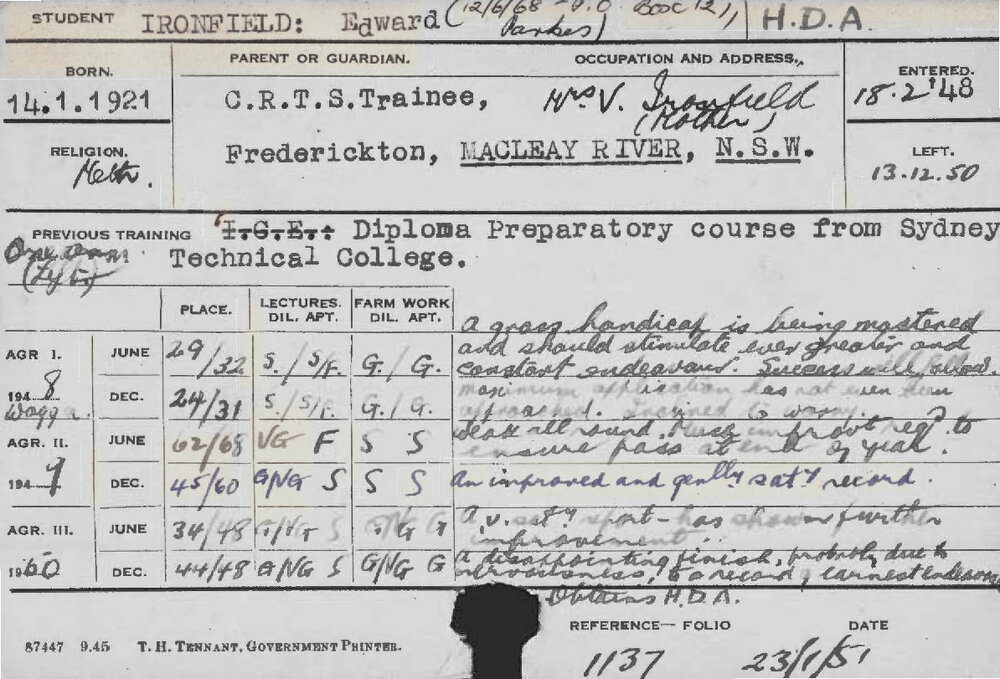 STUDENT IRONFIELD: Edward (12/6/68 - P.O. Box 121, H.D.A.
Parkes)
BORN. PARENT OR GUARDIAN. OCCUPATION AND ADDRESS. ENTERED.
14.1.1921 C.R.T.S.Trainee, Mrs V. Ironfield 18.2.'48
(Mother)
RELIGION. Frederickton, MACLEAY RIVER, N.S.W. LEFT.
Meth. 13.12.50
PREVIOUS TRAINING I.G.E.: Diploma Preparatory course from Sydney
Technical College.
PLACE. LECTURES. FARM WORK
DIL. APT. DIL. APT.
AGR I. JUNE 29/32 S./S/F. G./G. A gross handicap is being mastered
and should stimulate ever greater and
constant endeavour. Success will follow.
1948 DEC. 24/31 S./S/F. G./G. maximum application has not even been
Wagga. Inclined to worry.
AGR. II. JUNE 62/68 VG F S S Weak all round. Much improvt req. to
ensure pass at end of year.
1949 DEC. 45/60 G/VG S S S An improved and genlly saty record.
AGR. III. JUNE 34/48 G/VG S G G A v. saty report - has shown further
improvement.
1950 DEC. 44/48 G/VG S G/VG G A disappointing finish, probably due to
nervousness, to a record of earnest endeavour
Obtains H.D.A.
REFERENCE— FOLIO DATE
87447 9.45 T. H. TENNANT, GOVERNMENT PRINTER. 1137 23/1/51